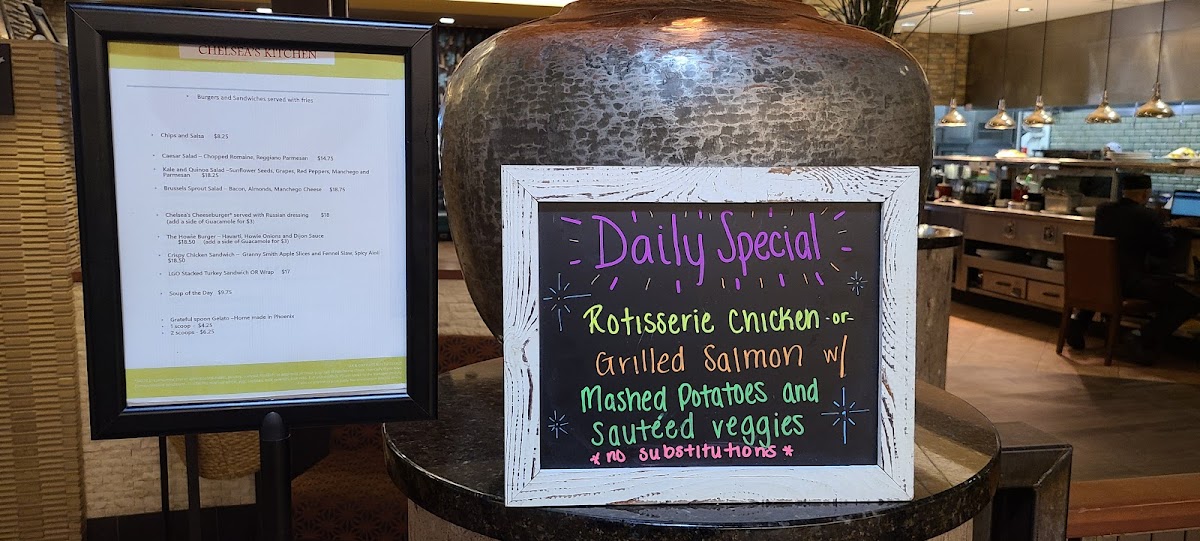 CHELSEA'S KITCHEN
• Burgers and Sandwiches served with fries
• Chips and Salsa $8.25
• Caesar Salad – Chopped Romaine, Reggiano Parmesan $14.75
• Kale and Quinoa Salad –Sunflower Seeds, Grapes, Red Peppers, Manchego and
Parmesan $18.25
• Brussels Sprout Salad – Bacon, Almonds, Manchego Cheese $18.75
• Chelsea's Cheeseburger* served with Russian dressing $18
(add a side of Guacamole for $3)
• The Howie Burger – Havarti, Howie Onions and Dijon Sauce
$18.50 (add a side of Guacamole for $3)
• Crispy Chicken Sandwich – Granny Smith Apple Slices and Fennel Slaw, Spicy Aioli
$18.50
• LGO Stacked Turkey Sandwich OR Wrap $17
• Soup of the Day $9.75
• Grateful spoon Gelato –Home made in Phoenix
• 1 scoop - $4.25
• 2 scoops - $6.25
Daily Special
Rotisserie Chicken -or-
Grilled Salmon w/
Mashed Potatoes and
sautéed veggies
* no substitutions *